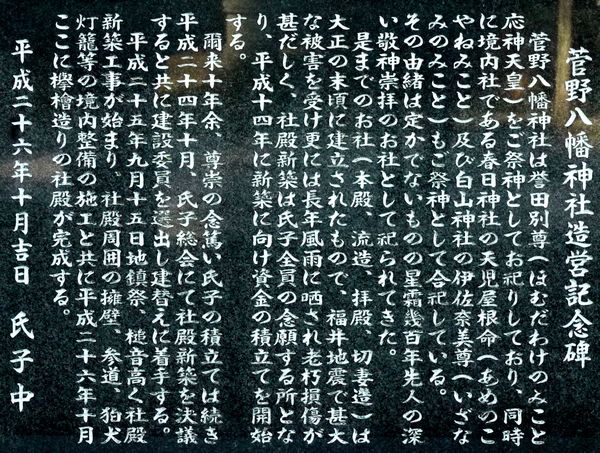 菅野八幡神社造営記念碑
菅野八幡神社は誉田別尊（ほむだわけのみこと
応神天皇）をご祭神としてお祀りしており、同時
に境内社である春日神社の天児屋根命（あめのこ
やねみこと）及び白山神社の伊佐奈美尊（いざな
みのみこと）もご祭神として合祀している。
その由緒は定かでないものの星霜幾百年先人の深
い敬神崇拝のお社として祀られてきた。
是までのお社（本殿、流造、拝殿、切妻造）は
大正の末頃に建立されたもので、福井地震で甚大
な被害を受け更には長年風雨に晒され老朽損傷が
甚だしく、社殿新築は氏子全員の念願する所とな
り、平成十四年に新築に向け資金の積立てを開始
する。
爾来十年余、尊崇の念篤い氏子の積立ては続き
平成二十四年十月、氏子総会にて社殿新築を決議
すると共に建設委員を選出し建替えに着手する。
平成二十五年九月十五日地鎮祭、槌音高く社殿
新築工事が始まり、社殿周囲の擁壁、参道、狛犬
灯籠等の境内整備の施工と共に平成二十六年十月
ここに欅檜造りの社殿が完成する。
平成二十六年十月吉日　氏子中